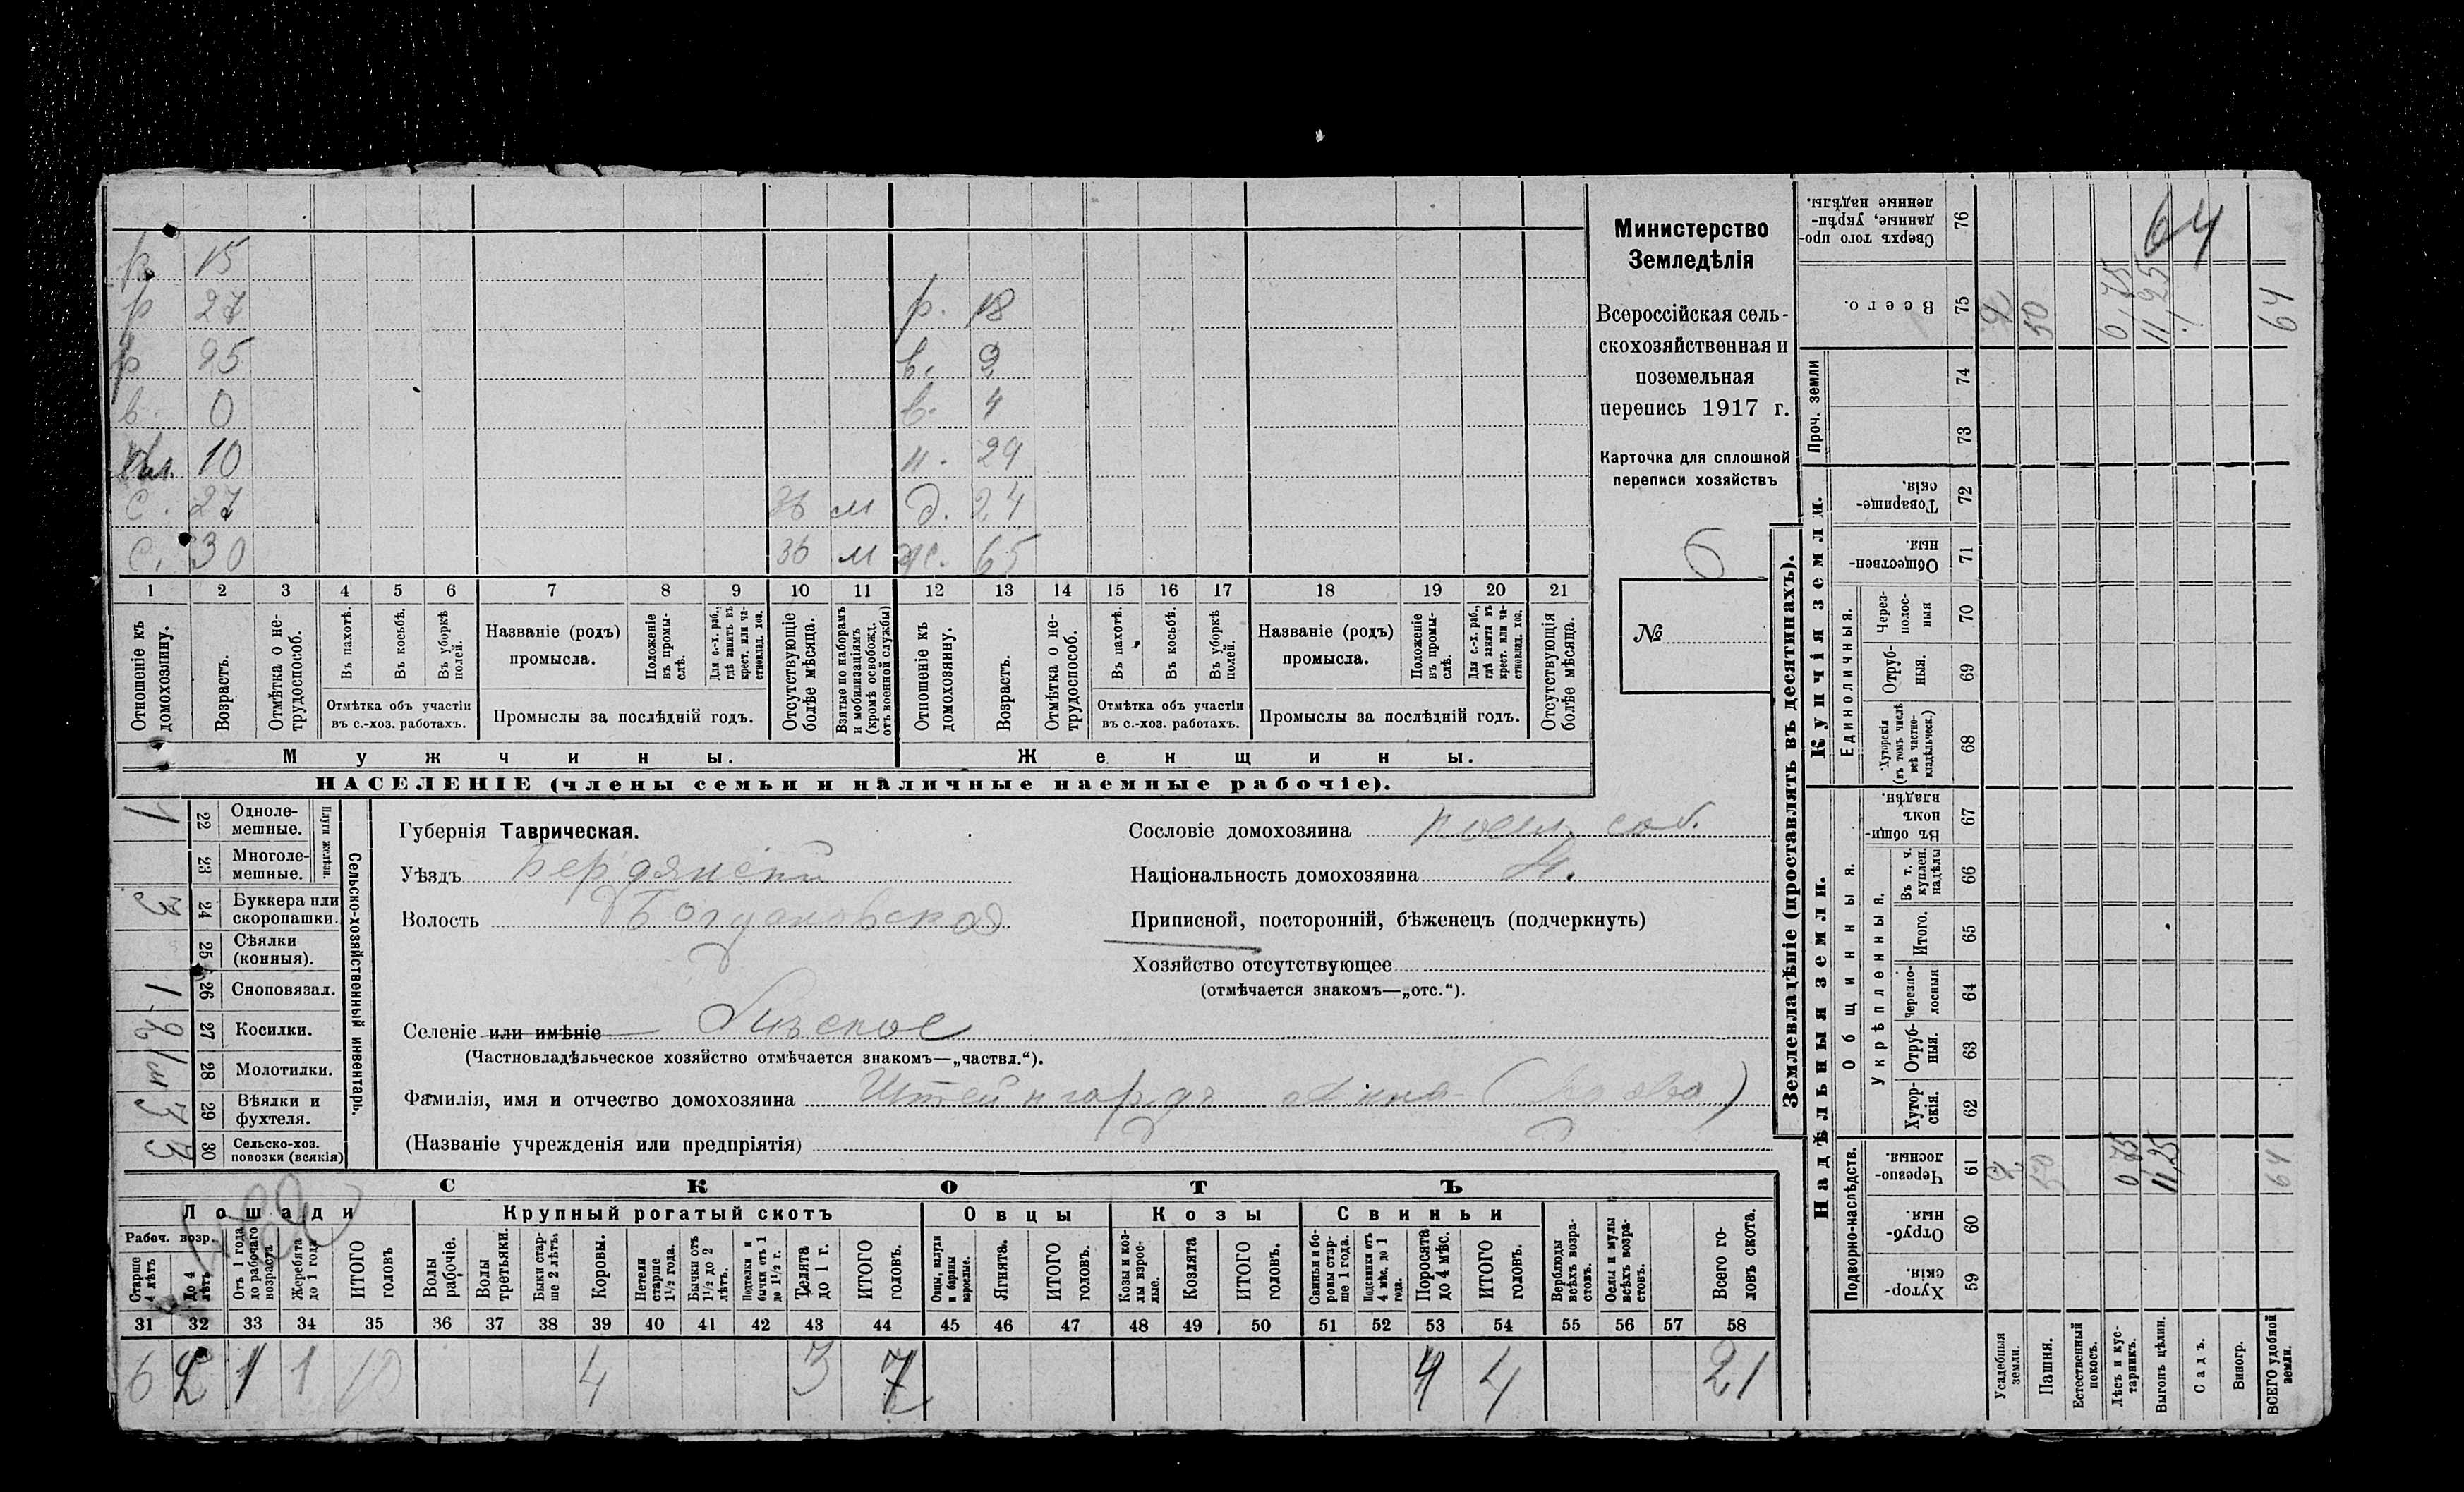 р. 15
р 27 р. 18
р 25 в. 9
в. 0 в. 4
10 н. 29
с. 27 36 м д. 24
с. 30 36 м ж. 65
1 2 3 4 5 6 7 8 9 10 11 12 13 14 15 16 17 18 19 20 21
Отношеніе къ домохозяину.
Возрастъ.
Отмѣтка о нетрудоспособ.
Въ пахотѣ.
Въ косьбѣ.
Въ уборкѣ полей.
Отмѣтка объ участіи
въ с.-хоз. работахъ.
Названіе (родъ)
промысла.
Положеніе въ промыслѣ.
Для с.-х. раб., гдѣ занятъ въ крест. или частновлад. хоз.
Промыслы за послѣдній годъ.
Отсутствующіе болѣе мѣсяца.
Взятые по наборамъ и мобилизаціямъ (кромѣ освобожд. отъ военной службы)
Отношеніе къ домохозяину.
Возрастъ.
Отмѣтка о нетрудоспособ.
Въ пахотѣ.
Въ косьбѣ.
Въ уборкѣ полей.
Отмѣтка объ участіи
въ с.-хоз. работахъ.
Названіе (родъ)
промысла.
Положеніе въ промыслѣ.
Для с.-х. раб., гдѣ занята въ крест. или частновлад. хоз.
Промыслы за послѣдній годъ.
Отсутствующія болѣе мѣсяца.
Мужчины. Женщины.
НАСЕЛЕНІЕ (члены семьи и наличные наемные рабочіе).
Министерство
Земледѣлія
Всероссійская сель-
скохозяйственная и
поземельная
перепись 1917 г.
Карточка для сплошной
переписи хозяйствъ
6
№
Сельско-хозяйственный инвентарь.
Плуги желѣзн.
1 22 Одноле-
мешные.
23 Многоле-
мешные.
3 24 Буккера или
скоропашки.
25 Сѣялки
(конныя).
1 26 Сноповязал.
2 27 Косилки.
28 Молотилки.
3 29 Вѣялки и
фухтеля.
3 30 Сельско-хоз.
повозки (всякія)
Губернія Таврическая.
Уѣздъ Бердянскій
Волость Богдановская
Селеніе или имѣніе
(Частновладѣльческое хозяйство отмѣчается знакомъ—„частвл.“).
Фамилія, имя и отчество домохозяина Штейнгардъ Анна (вдова)
(Названіе учрежденія или предпріятія)
Сословіе домохозяина посел. соб.
Національность домохозяина Н.
Приписной, посторонній, бѣженецъ (подчеркнуть)
Хозяйство отсутствующее
(отмѣчается знакомъ—„отс.“).
СКОТЪ
Лошади Крупный рогатый скотъ Овцы Козы Свиньи
Рабоч. возр.
Старше 4 лѣтъ
До 4 лѣтъ
Отъ 1 года до рабочаго возраста
Жеребята до 1 года
ИТОГО головъ
Волы рабочіе.
Волы третьяки.
Быки старше 2 лѣтъ.
Коровы.
Нетели старше 1½ года.
Бычки отъ 1½ до 2 лѣтъ.
Подтелки и бычки отъ 1 до 1½ г.
Телята до 1 г.
ИТОГО головъ.
Овцы, валухи и бараны взрослые.
Ягнята.
ИТОГО головъ.
Козы и козлы взрослые.
Козлята
ИТОГО головъ.
Свиньи и боровы старше 1 года.
Подсвинки отъ 4 мѣс. до 1 года.
Поросята до 4 мѣс.
ИТОГО головъ.
Верблюды всѣхъ возрастовъ.
Ослы и мулы всѣхъ возрастовъ.
Всего головъ скота.
31 32 33 34 35 36 37 38 39 40 41 42 43 44 45 46 47 48 49 50 51 52 53 54 55 56 57 58
6 2 1 1 10 4 3 7 4 4 21
Землевладѣніе (проставлять въ десятинахъ).
Надѣльныя земли. Купчія земли. Проч. земли
Подворно-наслѣдств. Общинныя. Единоличныя.
Укрѣпленныя.
Хуторскія. 59
Отрубныя. 60
Черезполосныя. 61
Хуторскія. 62
Отрубныя. 63
Черезполосныя 64
Итого. 65
Въ т. ч. куплен. надѣлы 66
Въ общинномъ владѣн. 67
Хуторскія (въ томъ числѣ всѣ частновладѣльческ.) 68
Отрубныя. 69
Черезполосныя 70
Общественныя. 71
Товарищескія. 72
73
74
Всего. 75
Сверхъ того проданные, укрѣпленные надѣлы. 76
Усадебныя земли. 2 2
Пашня. 50 50
Естественный покосъ.
Лѣсъ и кустарникъ. 0,75 0,75
Выгонъ цѣлин. 11,25 11,25
Садъ.
Виногр.
ВСЕГО удобной земли. 64 64
64